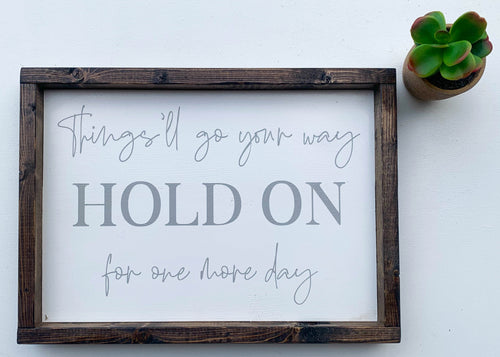 Things'll go your way
HOLD ON
for one more day